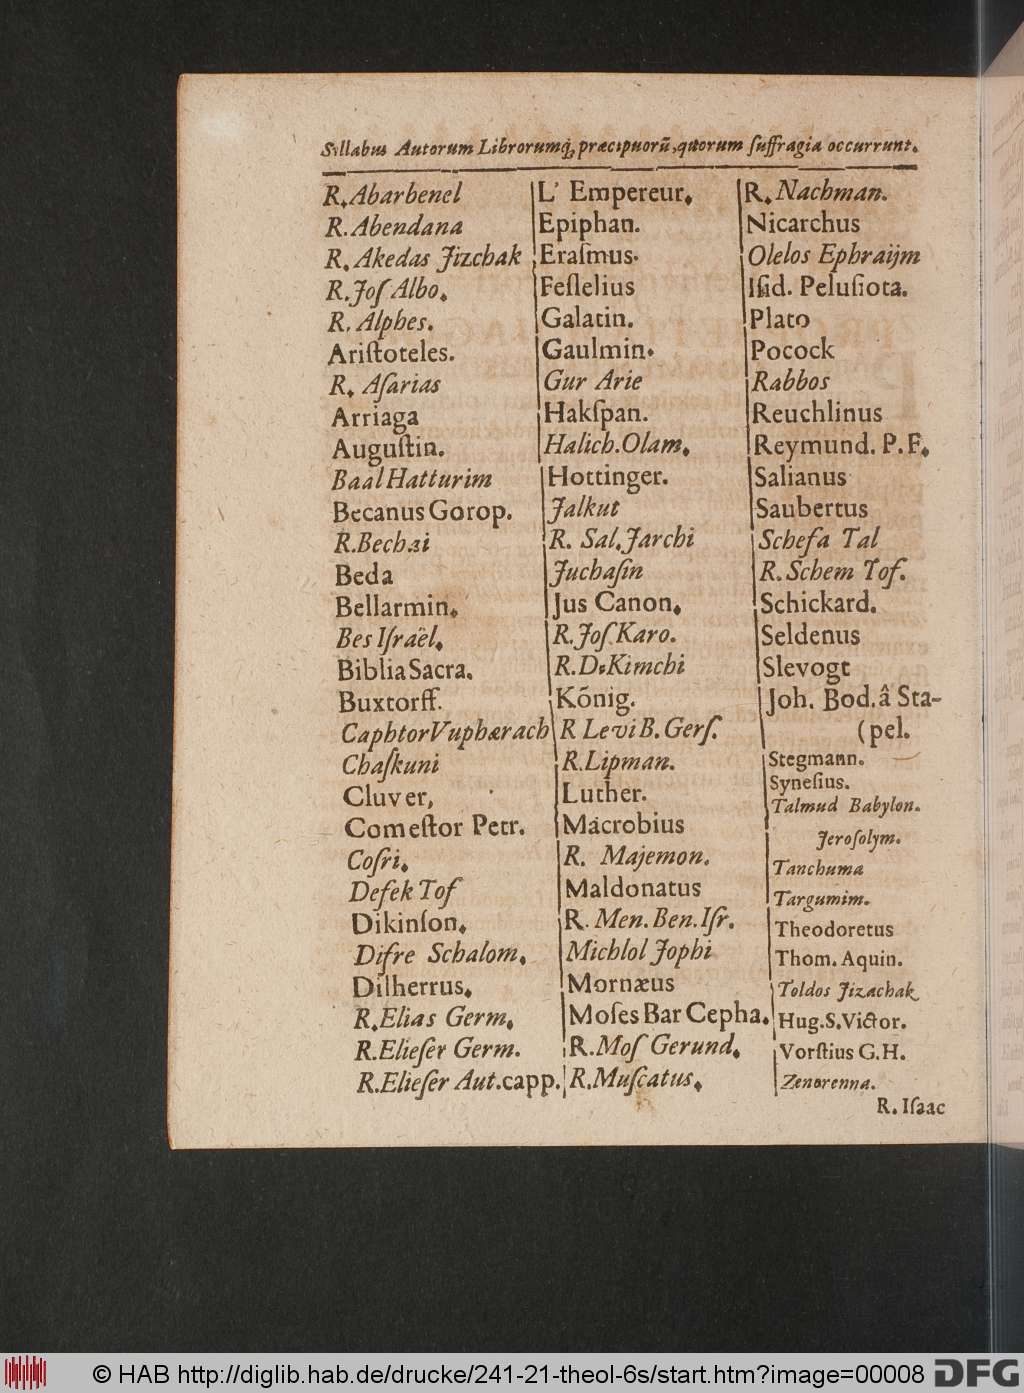 Sillabus Autorum Librorumq́; præcipuorũ, quorum ſuffragia occurrunt.
R. Abarbenel
R. Abendana
R. Akedas Jizchak
R. Joſ Albo.
R. Alphes.
Ariſtoteles.
R. Aſarias
Arriaga
Auguſtin.
Baal Hatturim
Becanus Gorop.
R. Bechai
Beda
Bellarmin.
Bes Iſraël.
Biblia Sacra.
Buxtorff.
Caphtor Vuphærach
Chaſkuni
Cluver,
Comeſtor Petr.
Coſri.
Defek Toſ
Dikinſon.
Difre Schalom.
Dilherrus.
R. Elias Germ.
R. Elieſer Germ.
R. Elieſer Aut. capp.
L' Empereur.
Epiphan.
Eraſmus.
Feſſelius
Galatin.
Gaulmin.
Gur Arie
Hakſpan.
Halich. Olam.
Hottinger.
Jalkut
R. Sal. Jarchi
Juchaſin
Jus Canon.
R. Joſ Karo.
R. D. Kimchi
Kõnig.
R Levi B. Gerſ.
R. Lipman.
Luther.
Macrobius
R. Majemon.
Maldonatus
R. Men. Ben. Iſr.
Michlol Jophi
Mornæus
Moſes Bar Cepha.
R. Moſ Gerund.
R. Muſcatus.
R. Nachman.
Nicarchus
Olelos Ephraijm
Iſid. Peluſiota.
Plato
Pocock
Rabbos
Reuchlinus
Reymund. P. F.
Salianus
Saubertus
Schefa Tal
R. Schem Tof.
Schickard.
Seldenus
Slevogt
Joh. Bod. â Sta-
(pel.
Stegmann.
Syneſius.
Talmud Babylon.
Jeroſolym.
Tanchuma
Targumim.
Theodoretus
Thom. Aquin.
Toldos Jizachak
Hug. S. Victor.
Vorſtius G. H.
Zenorenna.
R. Iſaac
© HAB http://diglib.hab.de/drucke/241-21-theol-6s/start.htm?image=00008
DFG